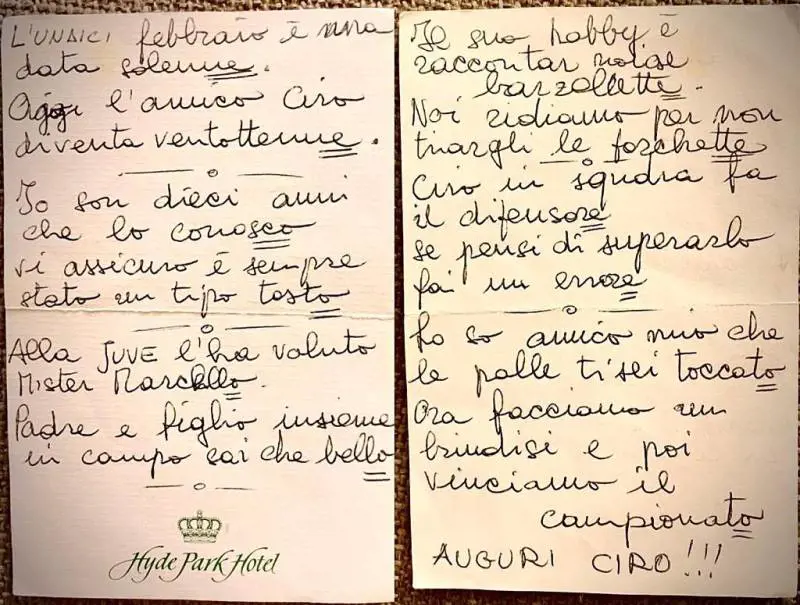 L'UNDICI febbraio è una
data solenne.
Oggi l'amico Ciro
diventa ventottenne.
Io son dieci anni
che lo conosco
vi assicuro è sempre
stato un tipo tosto
Alla JUVE l'ha voluto
Mister Marcello.
Padre e figlio insieme
in campo sai che bello
Hyde Park Hotel
Il suo hobby è
raccontar noiose
barzellette.
Noi ridiamo per non
tirargli le forchette
Ciro in squadra fa
il difensore
se pensi di superarlo
fai un errore
Lo so amico mio che
le palle ti sei toccato
Ora facciamo un
brindisi e poi
vinciamo il
campionato
AUGURI CIRO!!!